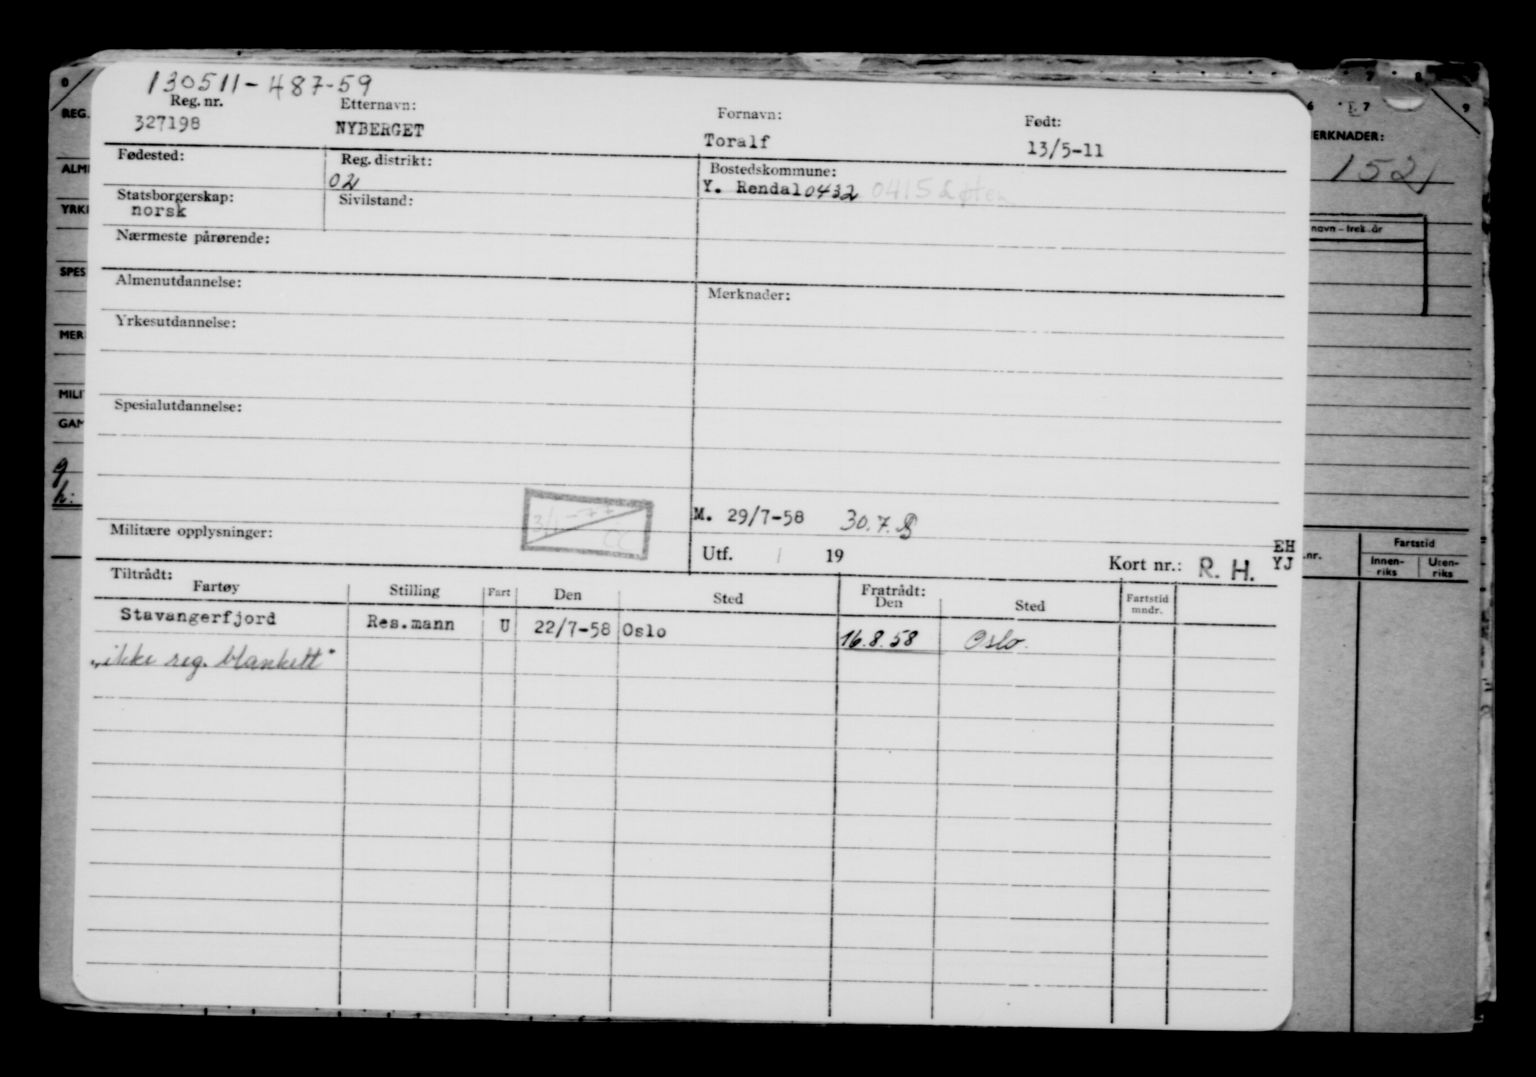 130511-487-59
Reg. nr. Etternavn: Fornavn: Født:
327198 NYBERGET Toralf 13/5-11
Fødested: Reg. distrikt: Bostedskommune:
02 Y. Rendal 0432 0415 Løten
Statsborgerskap: Sivilstand:
norsk
Nærmeste pårørende:
Almenutdannelse: Merknader:
Yrkesutdannelse:
Spesialutdannelse:
M. 29/7-58 30.7.
Militære opplysninger:
Utf. / 19 Kort nr.: R. H. EH
YJ
Tiltrådt: Fratrådt:
Fartøy Stilling Fart Den Sted Den Sted Fartstid mndr.
Stavangerfjord Res.mann U 22/7-58 Oslo 16.8.58 Oslo.
"ikke reg. blankett"
0
REG.
ALM
YRK
SPES
MER
MILI
GAM
g
h:
6 7 8 9
7
ERKNADER:
152
navn - trek. år
.nr. Fartstid
Innen-riks Uten-riks